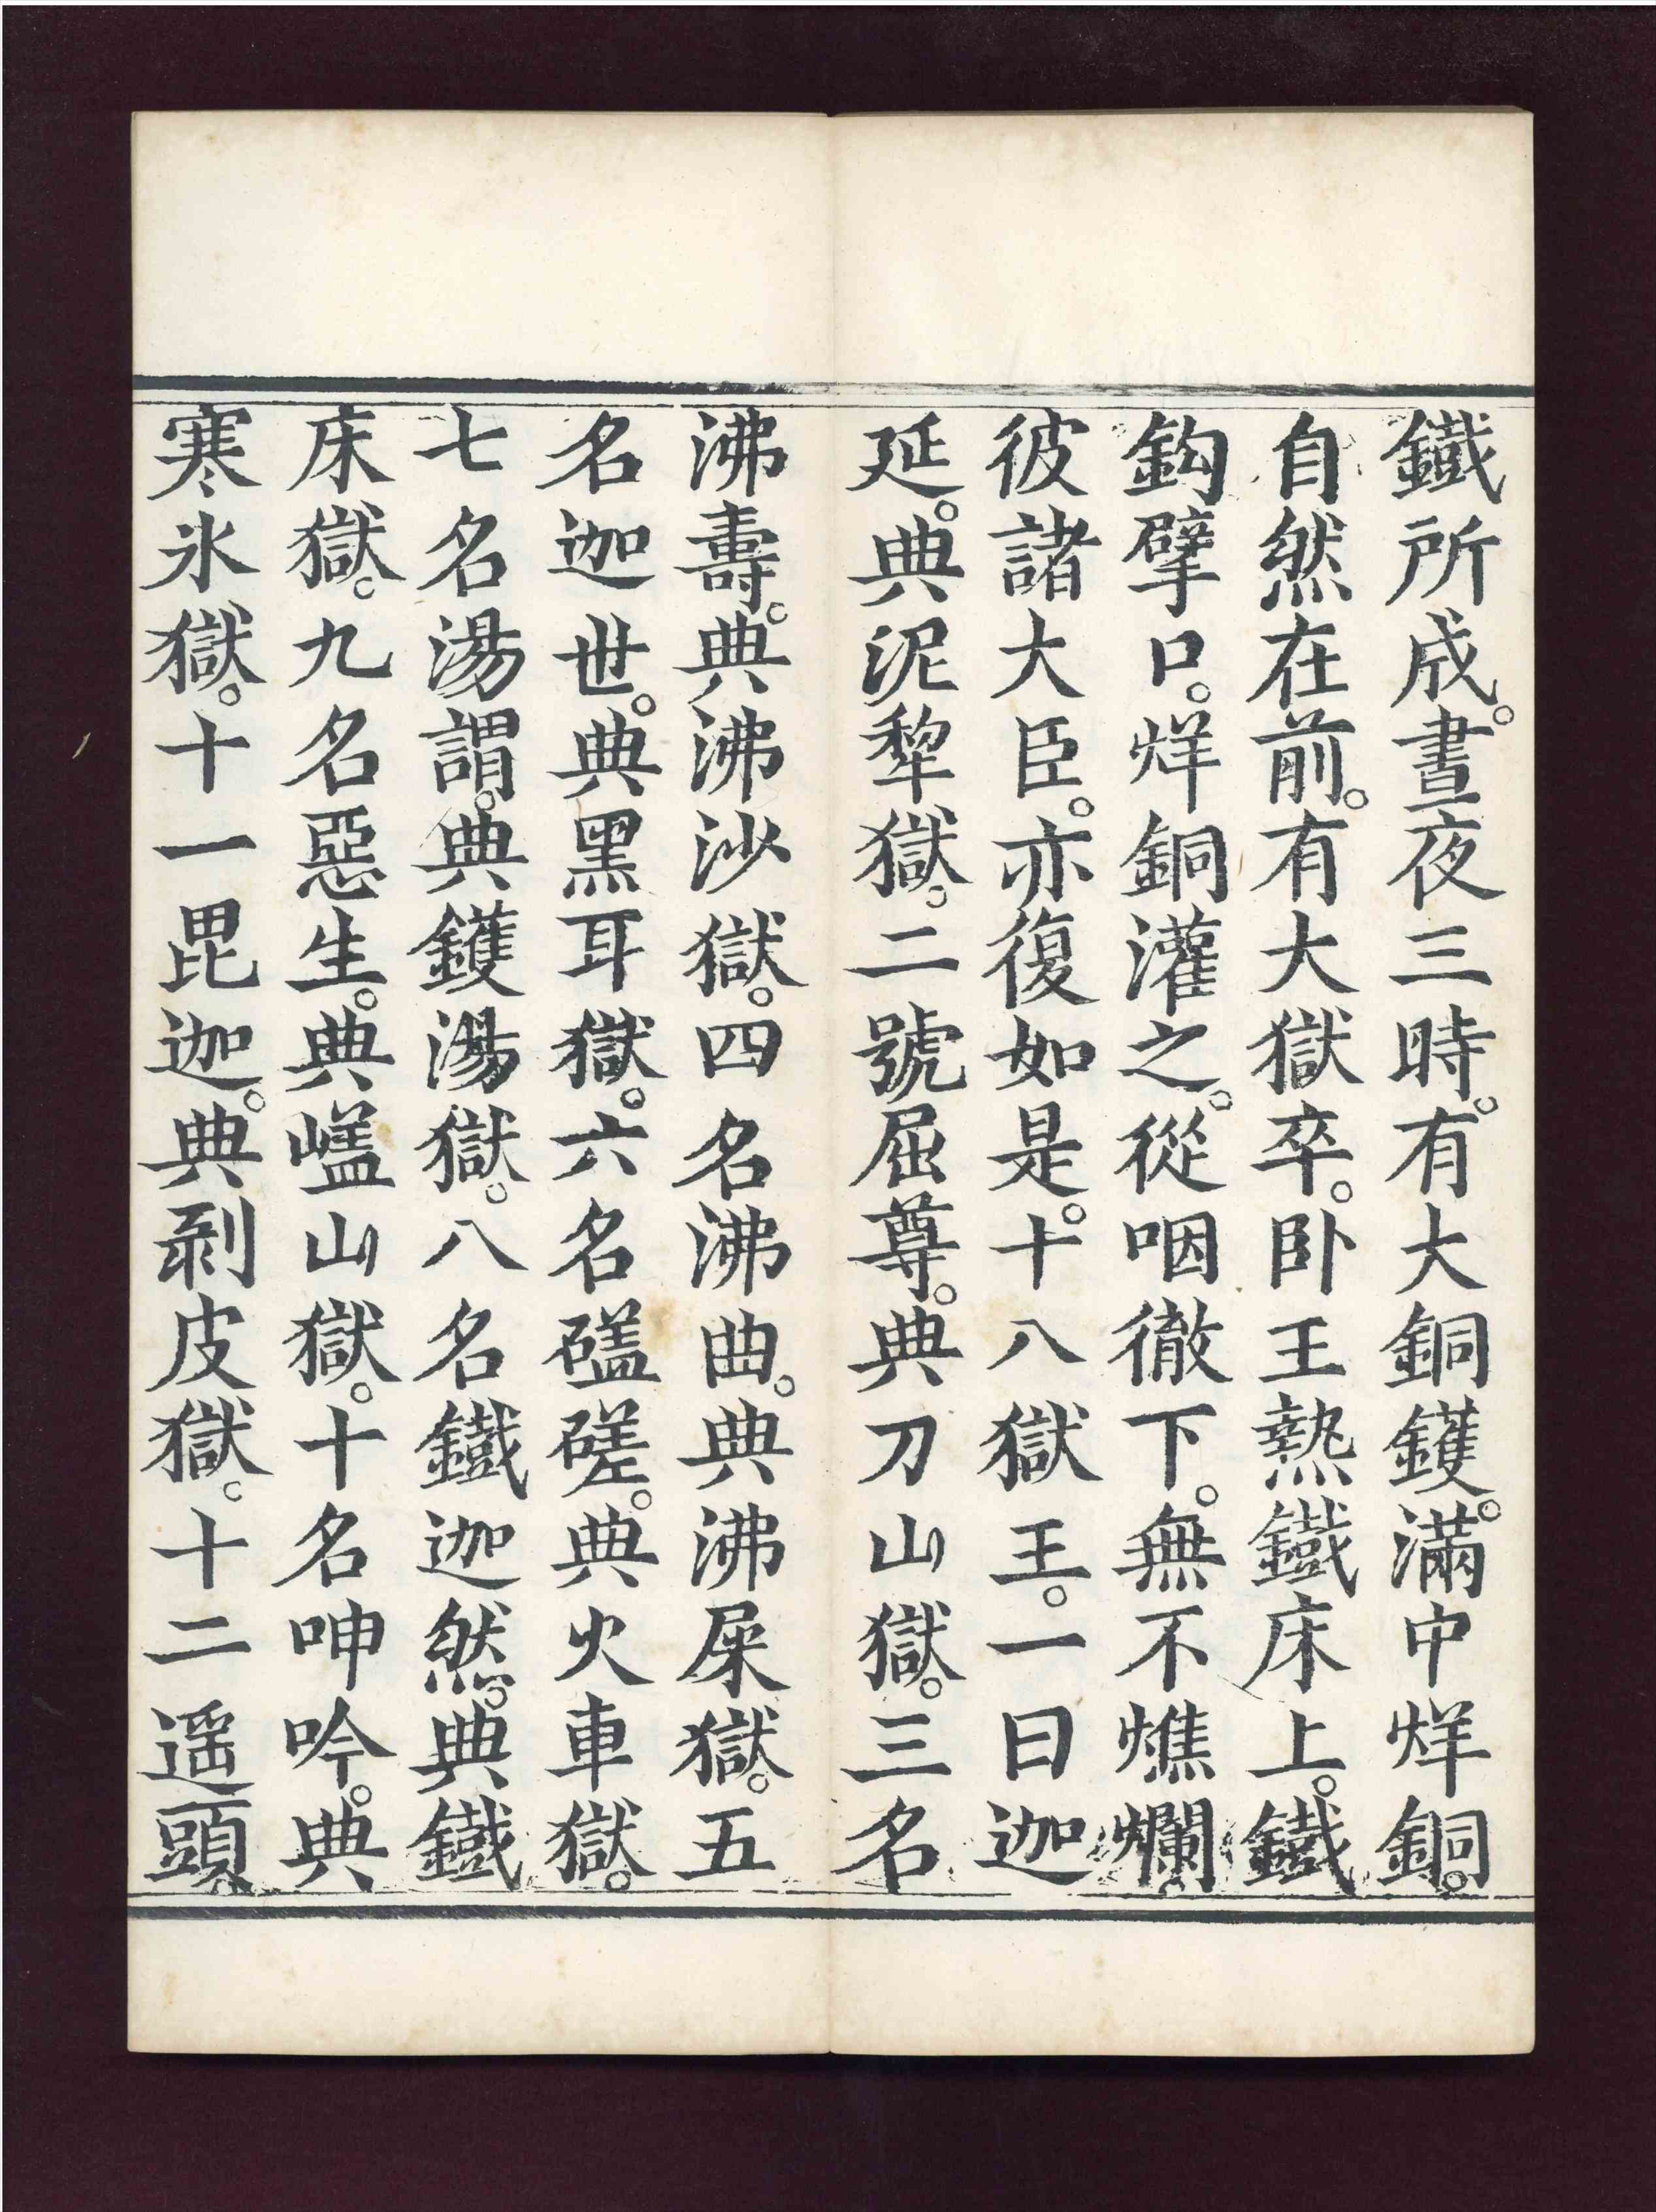 鐵所成。晝夜三時。有大銅鑊。滿中烊銅。
自然在前。有大獄卒。臥王熱鐵床上。鐵
鈎擘口。烊銅灌之。從咽徹下。無不燋爛。
彼諸大臣。亦復如是。十八獄王。一曰迦
延。典泥犂獄。二號屈尊。典刀山獄。三名
沸壽。典沸沙獄。四名沸曲。典沸屎獄。五
名迦世。典黑耳獄。六名𥔵磋。典火車獄。
七名湯謂。典鑊湯獄。八名鐵迦然。典鐵
床獄。九名惡生。典㠎山獄。十名呻吟。典
寒氷獄。十一毘迦。典剥皮獄。十二遥頭。